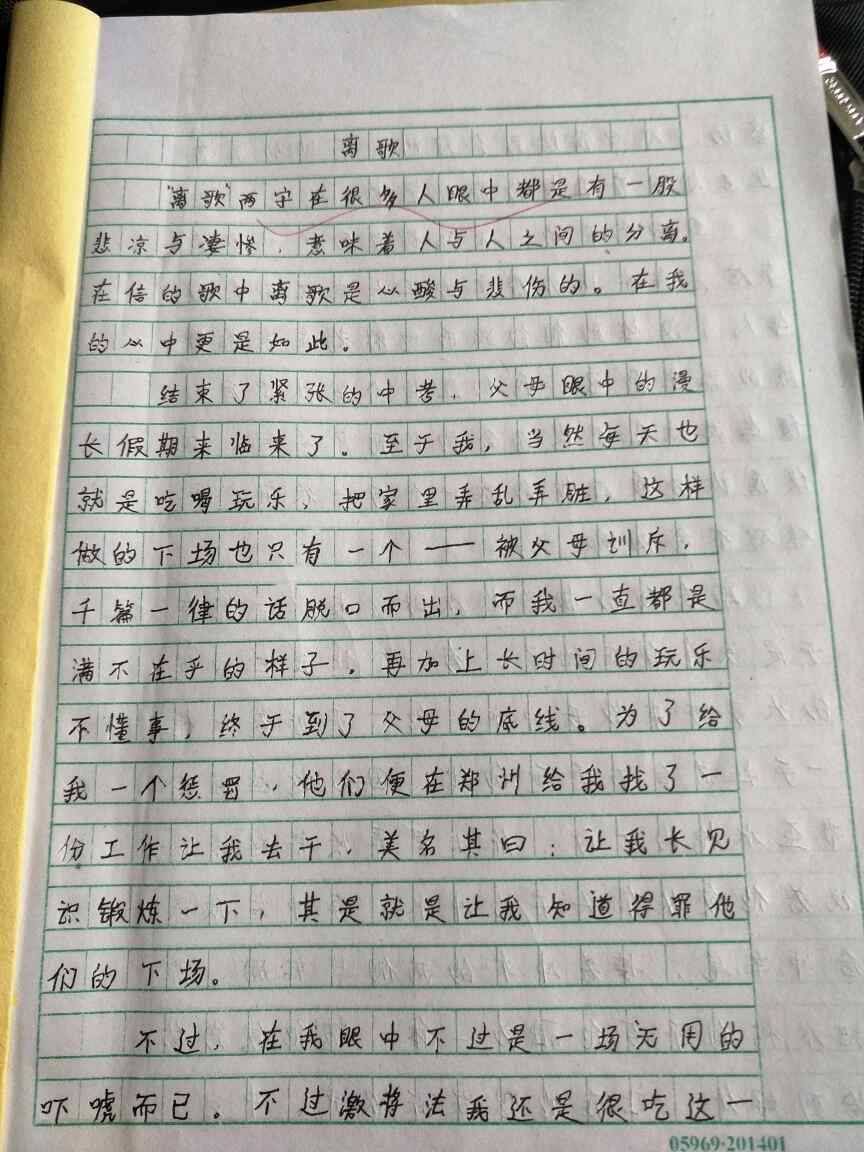 离歌
"离歌"两字在很多人眼中都是有一股
悲凉与凄惨，意味着人与人之间的分离。
在信的歌中离歌是心酸与悲伤的。在我
的心中更是如此。
结束了紧张的中考，父母眼中的漫
长假期来临来了。至于我，当然每天也
就是吃喝玩乐，把家里弄乱弄脏，这样
做的下场也只有一个——被父母训斥，
千篇一律的话脱口而出，而我一直都是
满不在乎的样子，再加上长时间的玩乐
不懂事，终于到了父母的底线。为了给
我一个惩罚，他们便在郑州给我找了一
份工作让我去干，美名其曰：让我长见
识锻炼一下，其是就是让我知道得罪他
们的下场。
不过，在我眼中不过是一场无用的
吓唬而已。不过激将法我还是很吃这一
05969·201401